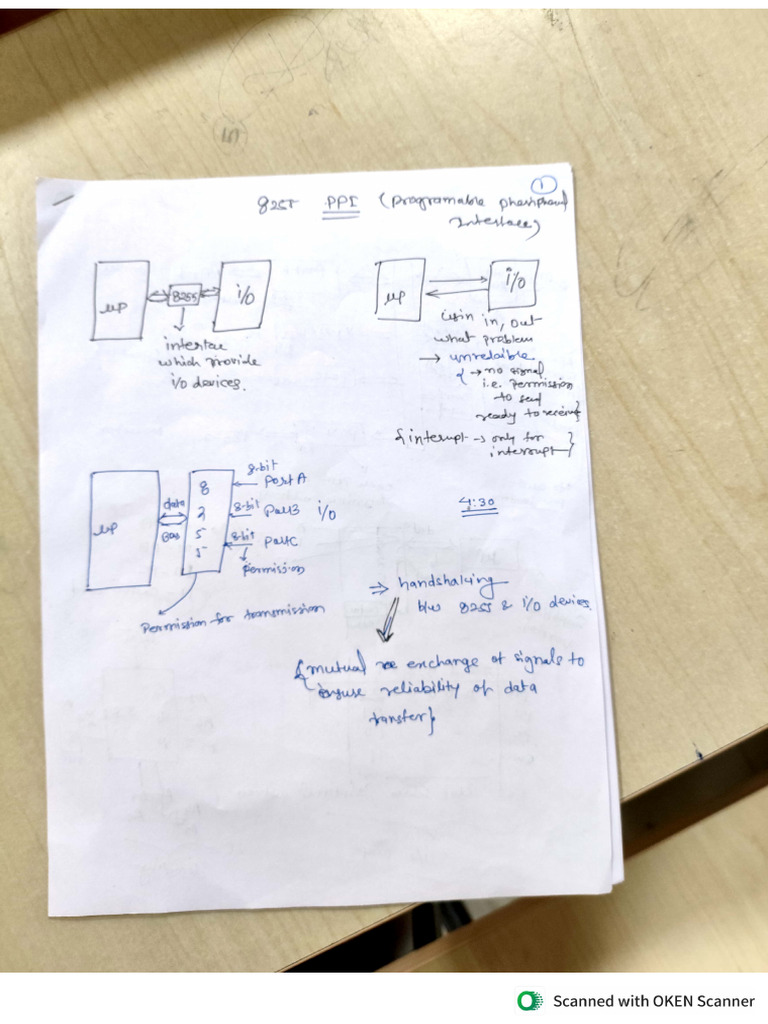 1
8255 PPI (Programable Pheripheral
Interface)
μP
8255
i/O
interfac
which provide
i/O devices.
μP
i/O
Usin in, out
what problem
→ unrelaible
{ → no signal
i.e. Permission
to send
ready to receive}
{interupt → only for
interrupt}
μP
data
Bus
8
2
5
5
8-bit
Port A
8-bit Port B i/O
8-bit Port C
Permission
Permission for transmission
4:30
⇒ handshaking
b/w 8255 & i/O devices.
{mutual exchange of signals to
ensuse reliability of data
transfer}
Scanned with OKEN Scanner